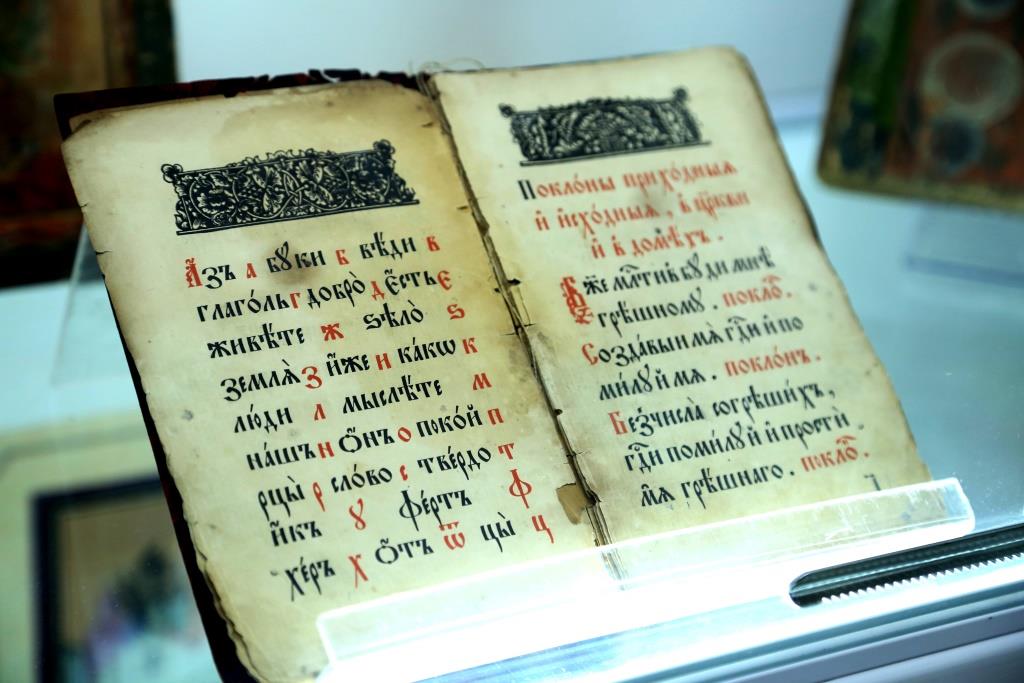 А҆́зъ а бꙋ́ки б вѣ́ди в
глаго́ль г добро̀ д є҆́сть є
живѣ́те ж ѕѣлѡ̀ ѕ
землѧ̀ з и҆́же и ка́кѡ к
лю́ди л мыслѣ́те м
на́шъ н ѻ҆́нъ о поко́й п
рцы̀ р сло́во с тве́рдо т
и҆́къ ꙋ фе́ртъ ф
хѣ́ръ х ѿтъ ѿ цы̀ ц
Покло́ны прихо́дныѧ
и҆ и҆схо́дныѧ, в цр҃кви
и҆ в домѣ́хъ.
Бж҃е млⷭ҇тивъ бꙋ́ди мнѣ̀
грѣ́шномꙋ. покло́.
Созда́выи мѧ̀ гдⷭ҇и и҆ по
ми́лꙋй мѧ. покло́нъ.
Безчисла̀ согрѣши́хъ,
гдⷭ҇и поми́лꙋй и҆ простѝ
мѧ̀ грѣ́шнаго. покло́.